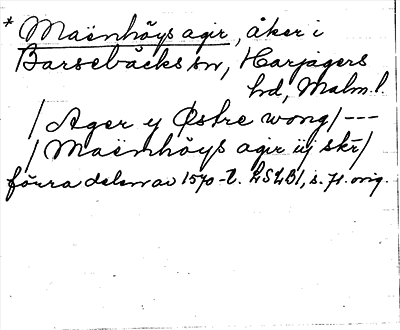 * Maënhöys agir, åker i
Barsebäcks sn, Harjagers
hd, Malm. l.
/ Ager y Østre wong / ---
/ Maënhöys agir iij skr /
förra delen av 1570-t. LSLB1, s. 71. orig.